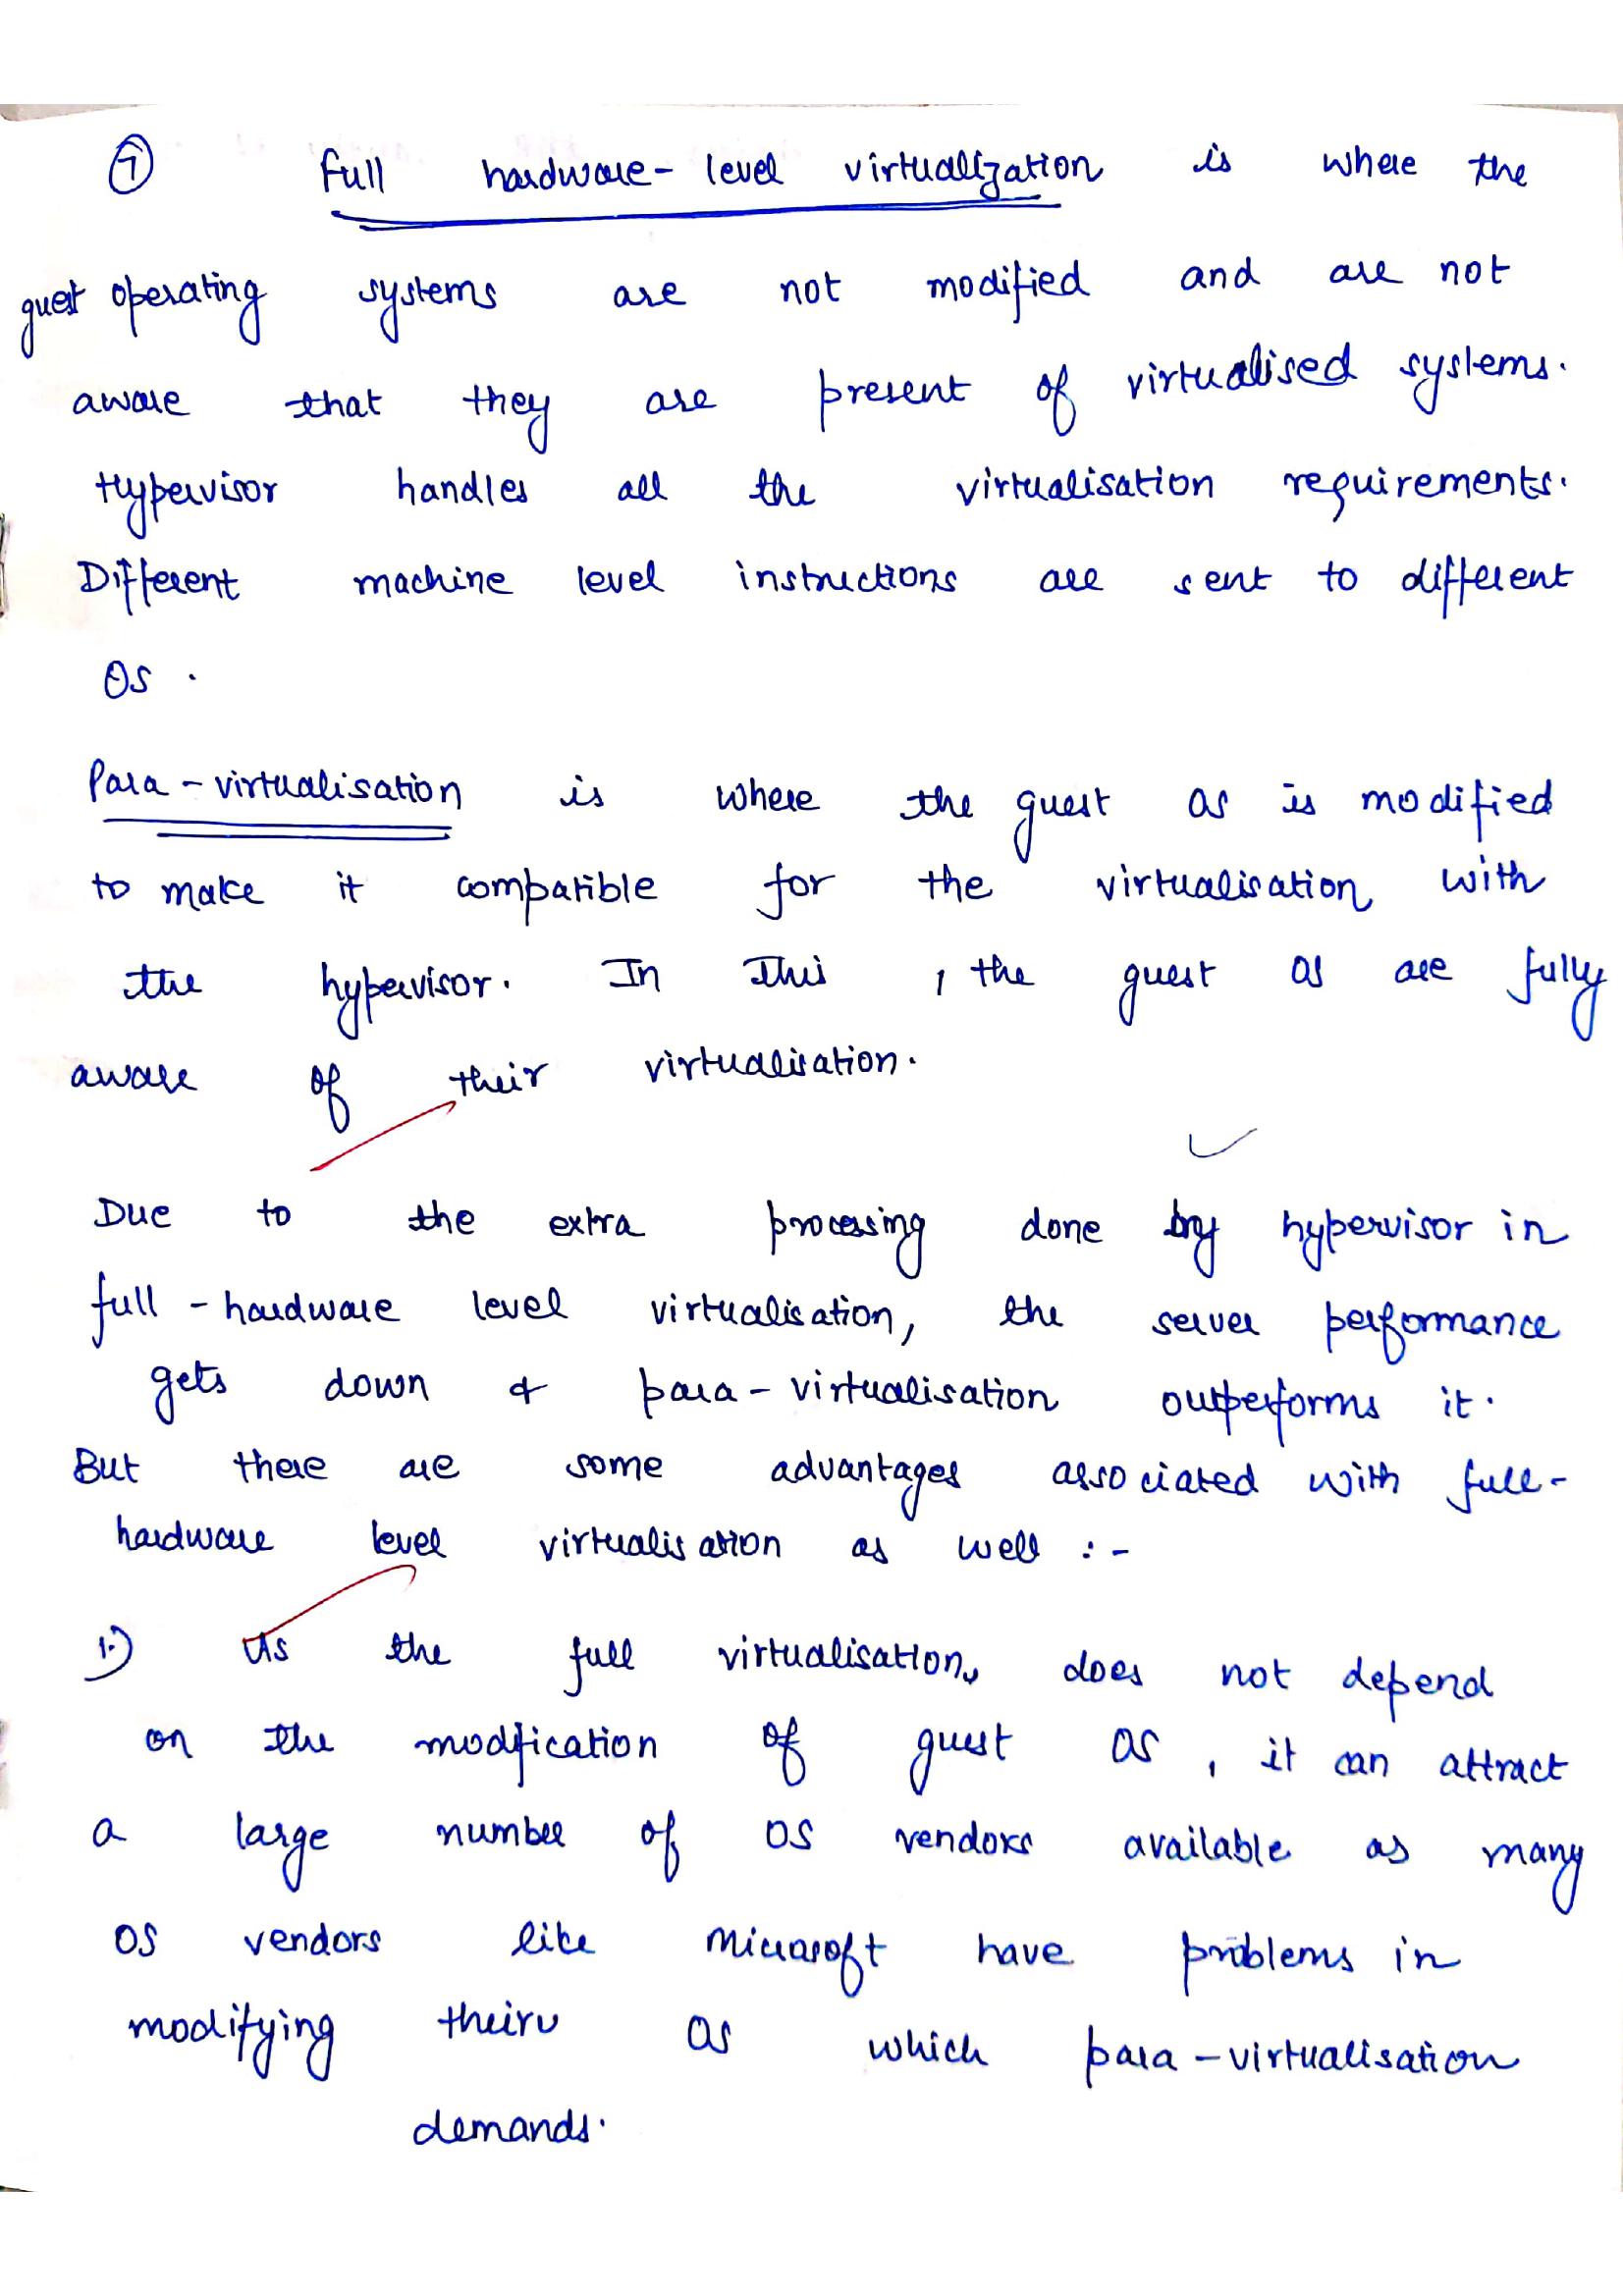 7 Full hardware-level virtualization is where the
guest operating systems are not modified and are not
aware that they are present of virtualised systems.
Hypervisor handles all the virtualisation requirements.
Different machine level instructions are sent to different
OS.
Para-virtualisation is where the guest OS is modified
to make it compatible for the virtualisation with
the hypervisor. In this, the guest OS are fully
aware of their virtualisation.
Due to the extra processing done by hypervisor in
full-hardware level virtualisation, the server performance
gets down & para-virtualisation outperforms it.
But there are some advantages associated with full-
hardware level virtualisation as well :-
1.) As the full virtualisation does not depend
on the modification of guest OS, it can attract
a large number of OS vendors available as many
OS vendors like Microsoft have problems in
modifying their OS which para-virtualisation
demands.